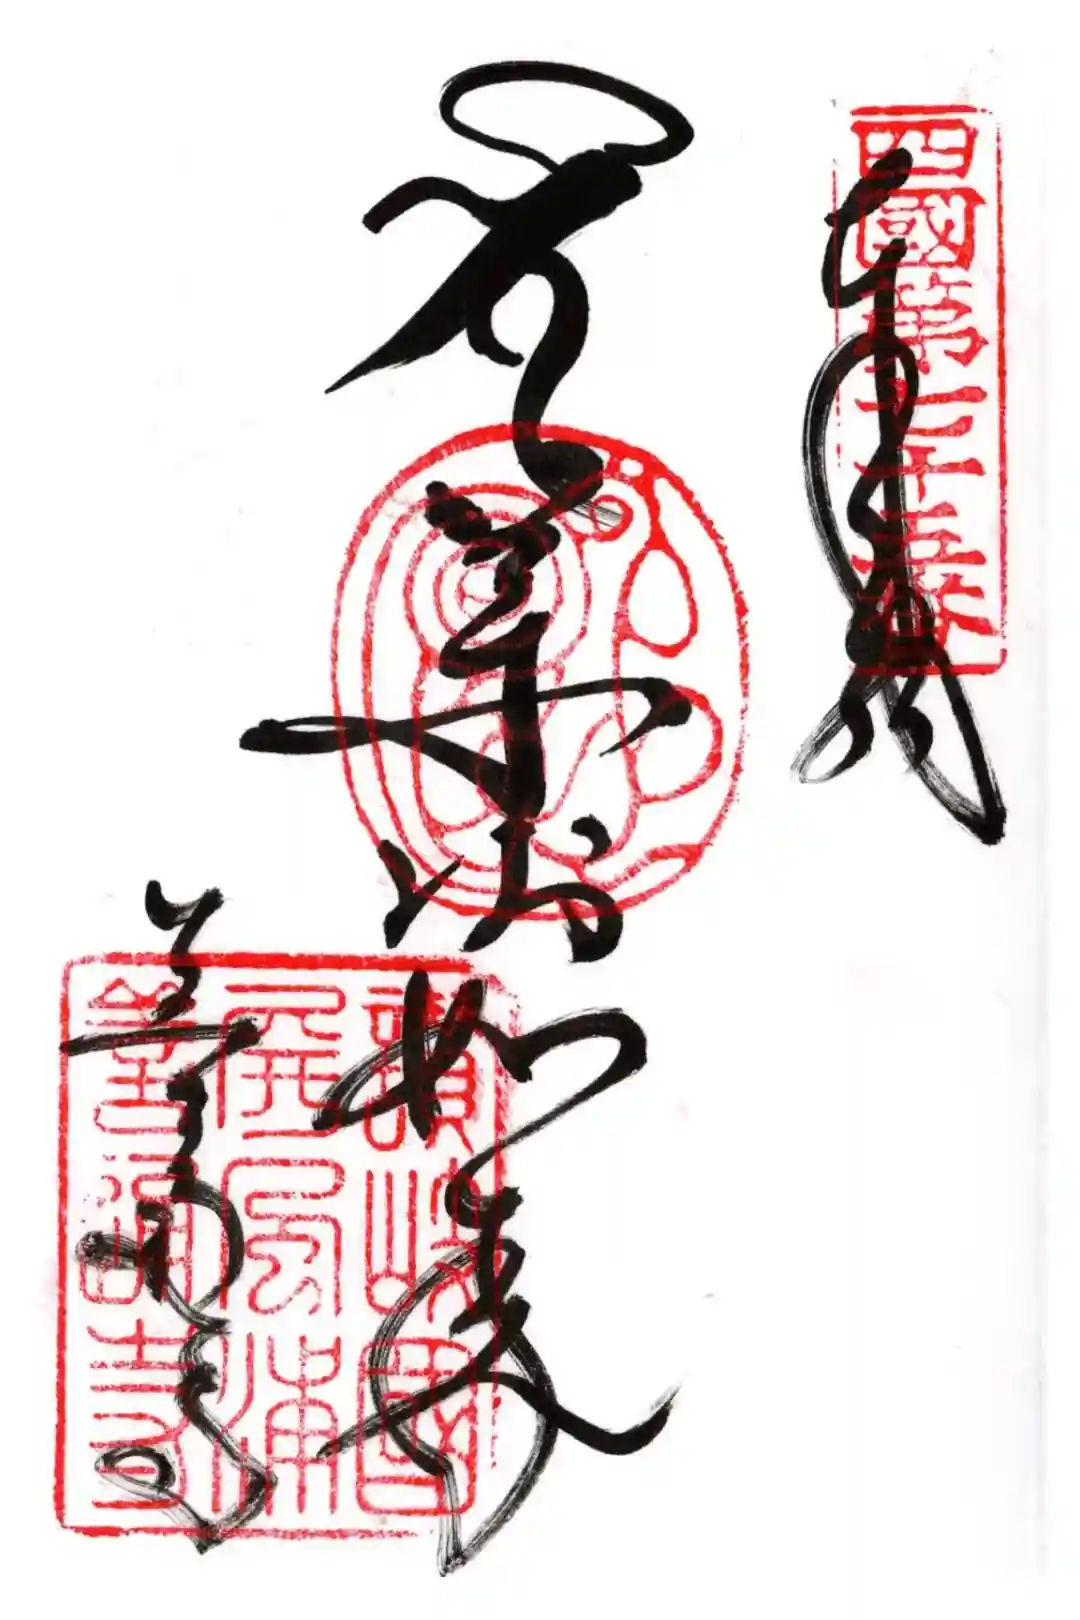 四國第七十五番
薬師如来
讃岐國
屏風浦
善通寺
善通寺